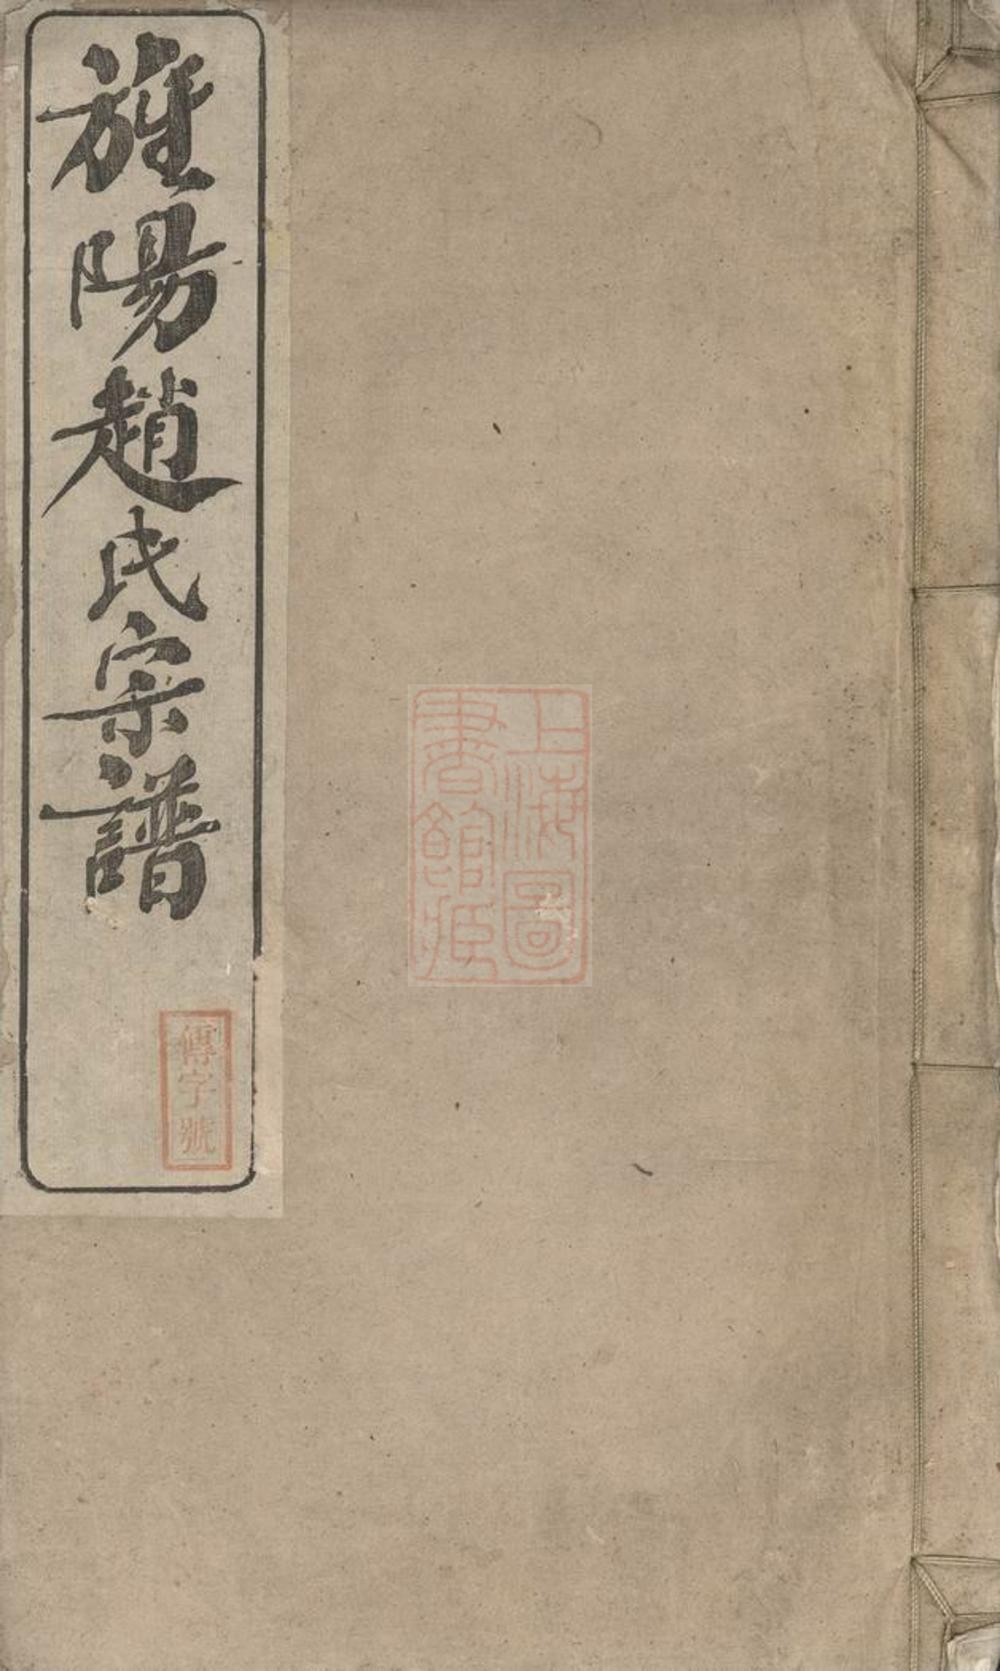 旌陽趙氏宗譜
傳字號
上海圖
書館藏